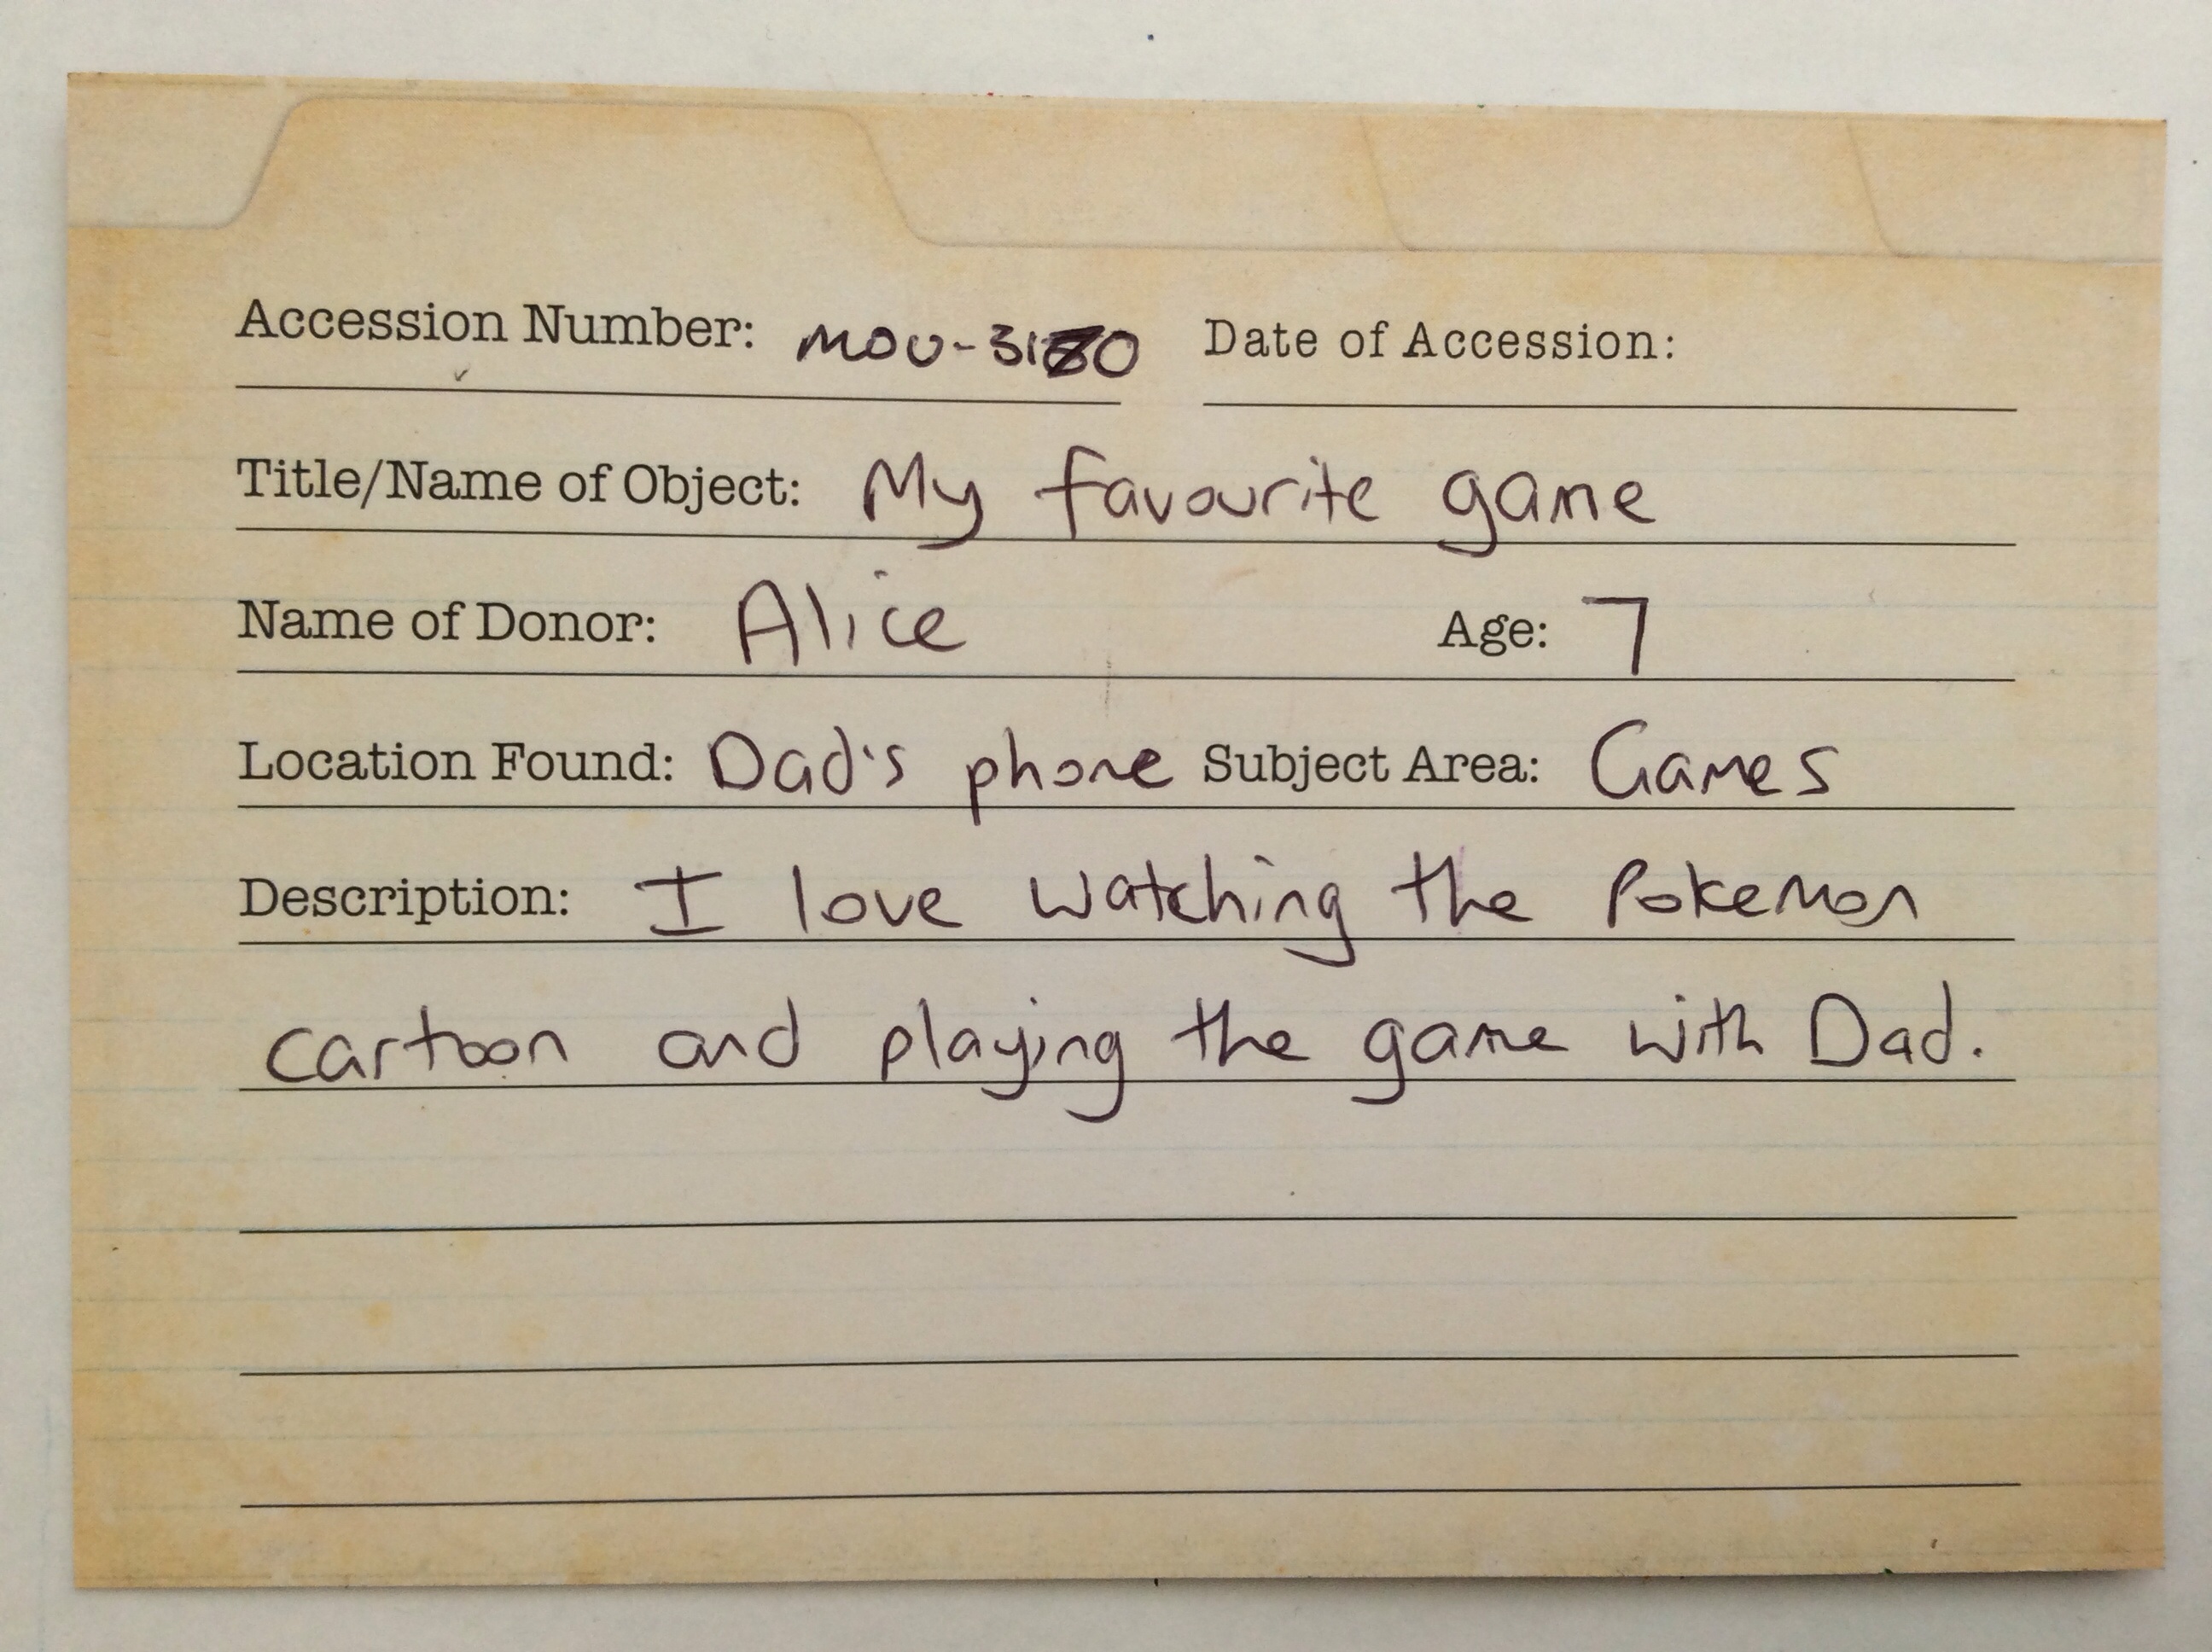 Accession Number: MOU-3180 Date of Accession:
Title/Name of Object: My favourite game
Name of Donor: Alice Age: 7
Location Found: Dad's phone Subject Area: Games
Description: I love watching the Pokemon
cartoon and playing the game with Dad.